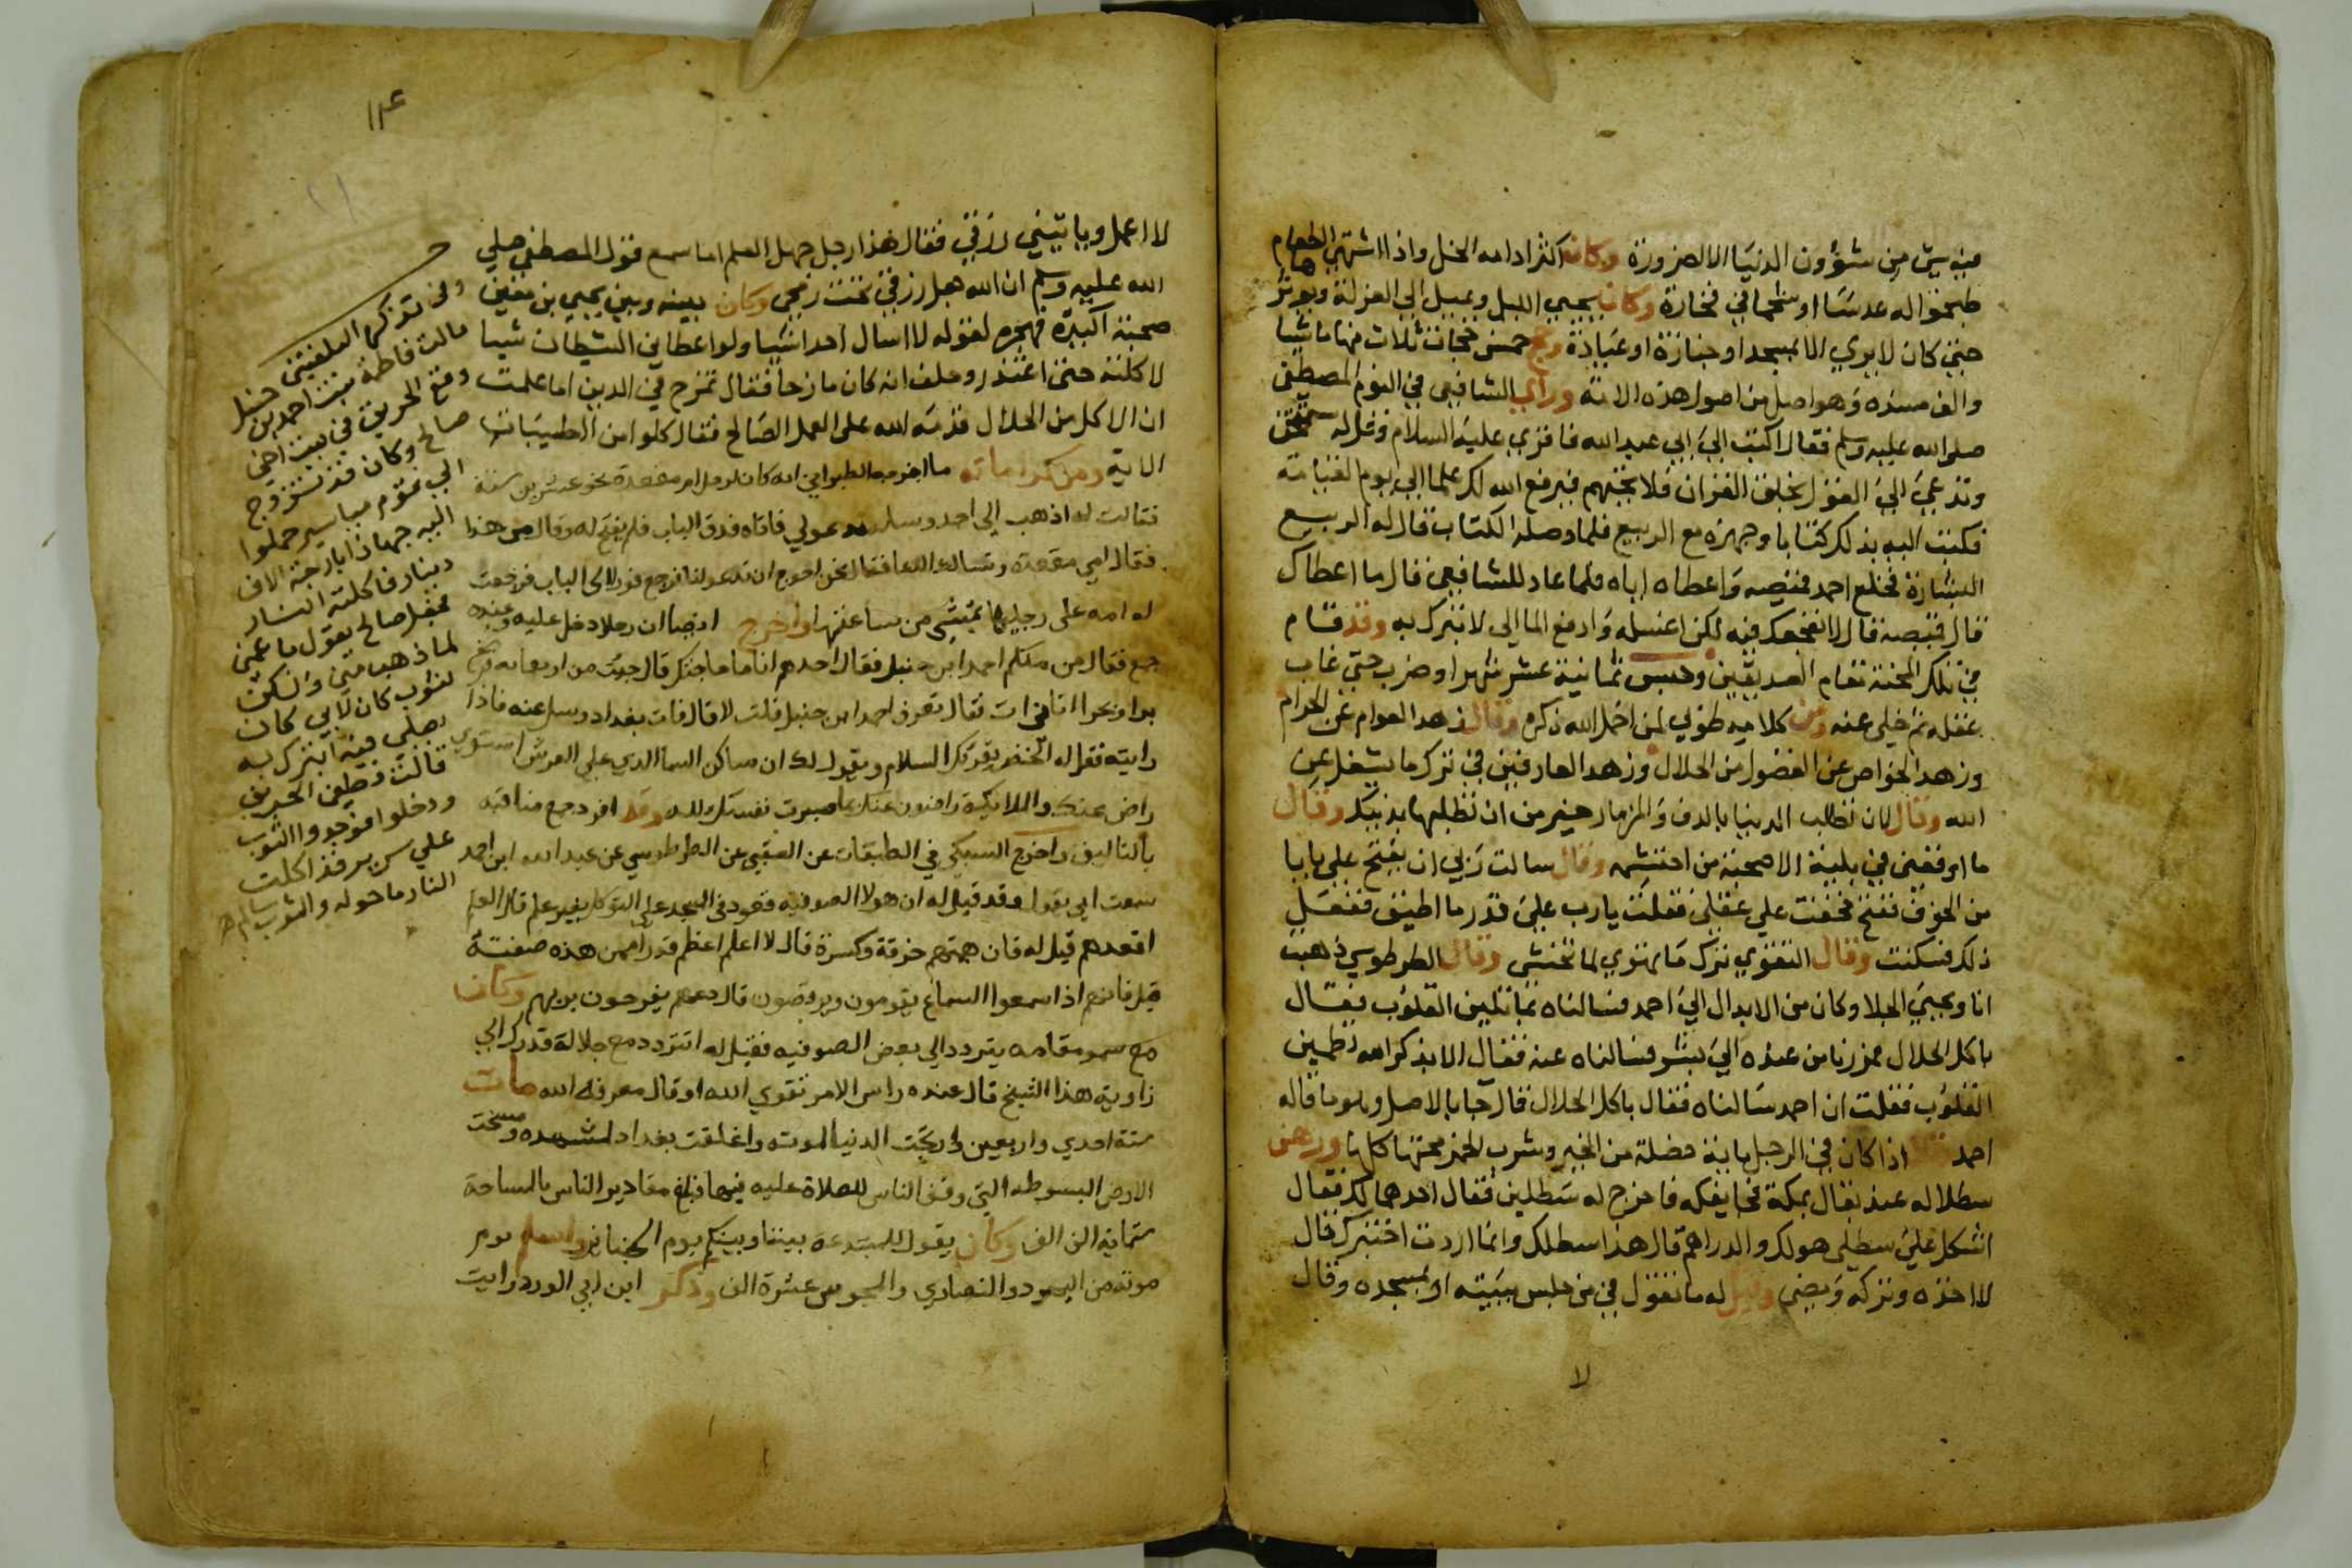 منه شي من شؤون الدنيا الا لضرورة وكان اكثر ادامه الخل واذا اشتهى الطعام
طبخوا له عدسا او شحما في فخارة وكان يحيي الليل ويميل الي العزلة ويوثر
حتي كان لا يري الا بمسجد او جنازة او عيادة وحج خمس حجات ثلاث منها ماشيا
والف مسنده وهو اصل من اصول هذه الامة وراي الشافعي في النوم المصطفي
صلي الله عليه وسلم فقال اكتب الي ابي عبد الله فاقري عليه السلام وقل له ستمتحن
وتدعي الي القول بخلق القران فلا تجبهم فيرفع الله لك علما الي يوم القيامة
فكتب اليه بذلك كتابا وجهزه مع الربيع فلما وصله الكتاب قال له الربيع
البشارة فخلع احمد قميصه واعطاه اياه فلما عاد للشافعي قال ما اعطاك
قال قميصه قال لا نفجعك فيه لكن اغسله وادفع الما الي لاتبرك به وقد قام
في تلك المحنة مقام الصديقين وحبس ثمانية عشر شهرا وضرب حتي غاب
عقله ثم خلي عنه ومن كلامه طوبي لمن اخمل الله ذكره وقال زهد العوام عن الحرام
وزهد الخواص عن الفضول من الحلال وزهد العارفين في ترك ما يشغل عن
الله وقال لان تطلب الدنيا بالدف والمزمار خير من ان تطلبها بدينك وقال
ما اوقعني في بلية الا صحبة من احتشمه وقال سالت ربي ان يفتح علي بابا
من الخوف ففتح فخفت علي عقلي فقلت يارب علي قدر ما اطيق ففعل
ذلك فسكنت وقال التقوي ترك ما تهوي لما تخشى وقال الطرطوسي ذهبت
انا ويحيي الجلا وكان من الابدال الي احمد فسالناه بما تلين القلوب فقال
باكل الحلال فمررنا من عنده الي بشر فسالناه عنه فقال الا بذكر الله تطمين
القلوب فقلت ان احمد سالناه فقال باكل الحلال قال جا بالاصل وهو ما قاله
احمد اذا كان في الرجل ماية خصلة من الخير وشرب الخمر محتها كلها ورهن
سطلا له عند بقال بمكة فجا يفكه فاخرج له سطلين فقال احدهما لك فقال
اشكل علي سطلي هو لك والدراهم قال هذا سطلك وانما اردت اختبرك قال
لا اخذه وتركه ومضي وقيل له ما تقول في من جلس ببيته او بمسجده وقال
لا
١١٤
٢١
لا اعمل وياتيني رزقي فقال هذا رجل جهل العلم اما سمع قول المصطفي صلي
الله عليه وسلم ان الله جعل رزقي تحت رمحي وكان بينه وبين يحيي بن معين
صحبة اكيدة فهجره لقوله لا اسال احدا شيا ولو اعطاني الشيطان شيا
لاكلته حتي اعتذر وحلف انه كان مازحا فقال تمزح في الدين اما علمت
ان الاكل من الحلال قدمه الله علي العمل الصالح فقال كلوا من الطيبات
الاية ومن كراماته ما اخرجه الطبراني انه كان لرجل ام مقعدة نحو عشرين سنة
فقالت له اذهب الي احمد وسله يدعو لي فاتاه فدق الباب فلم يفتح له وقال من هذا
فقال امي مقعدة وتسالك الدعا فقال نحن احوج ان تدعو لنا فرجع فورا الي الباب فخرجت
له امه علي رجليها تمشي من ساعتها واخرج ايضا ان رجلا دخل عليه وعنده
جمع فقال من منكم احمد ابن حنبل فقال احدهم انا ما حاجتك قال جيت من اربعماية فرسخ
برا وبحرا اتاني ات فقال تعرف احمد ابن حنبل قلت لا قال فات بغداد وسل عنه فاذا
رايته فقل له الخضر يقريك السلام ويقول لك ان ساكن السما الذي علي العرش استوي
راض عنك والملايكة راضون عنك بما صبرت نفسك لله وقد افرد جمع مناقبه
بالتاليف واخرج السبكي في الطبقات عن العتبي عن الطرطوسي عن عبد الله ابن احمد
سمعت ابي يقول وقد قيل له ان هولا الصوفية قعود في المسجد علي التوكل بغير علم قال العلم
اقعدهم قيل له فان همتهم خرقة وكسرة قال لا اعلم اعظم قدرا ممن هذه صفته
قيل فانهم اذا سمعوا السماع يقومون ويرقصون قال دعهم يفرحون بربهم وكان
مع سمو مقامه يتردد الي بعض الصوفيه فقيل له اتتردد مع جلالة قدرك الي
زاوية هذا الشيخ قال عنده راس الامر تقوي الله او قال معرفة الله مات
سنة احدي واربعين وارتجت الدنيا لموته واغلقت بغداد لمشهده ومسحت
الارض المبسوطه التي وقف الناس للصلاة عليه فيها فبلغ مقادير الناس بالمساحة
ستماية الف الف وكان يقول للمبتدعة بيننا وبينكم يوم الجنايز واسلم يوم
موته من اليهود والنصاري والمجوس عشرة الف وذكر ابن ابي الورد رايت
قالت فاطمة بنت احمد بن حنبل
وقع الحريق في بيت اخي
صالح وكان قد تزوج
الي قوم مياسير حملوا
اليه جهازا باربعة الاف
دينار فاكلته النار
فجعل صالح يقول ما غمني
لما ذهب مني والكن
لثوب كان لابي كان
يصلي فيه اتبرك به
قالت فطفي الحريق
ودخلوا فوجدوا الثوب
علي سرير قد اكلت
النار ما حوله والثوب سالم